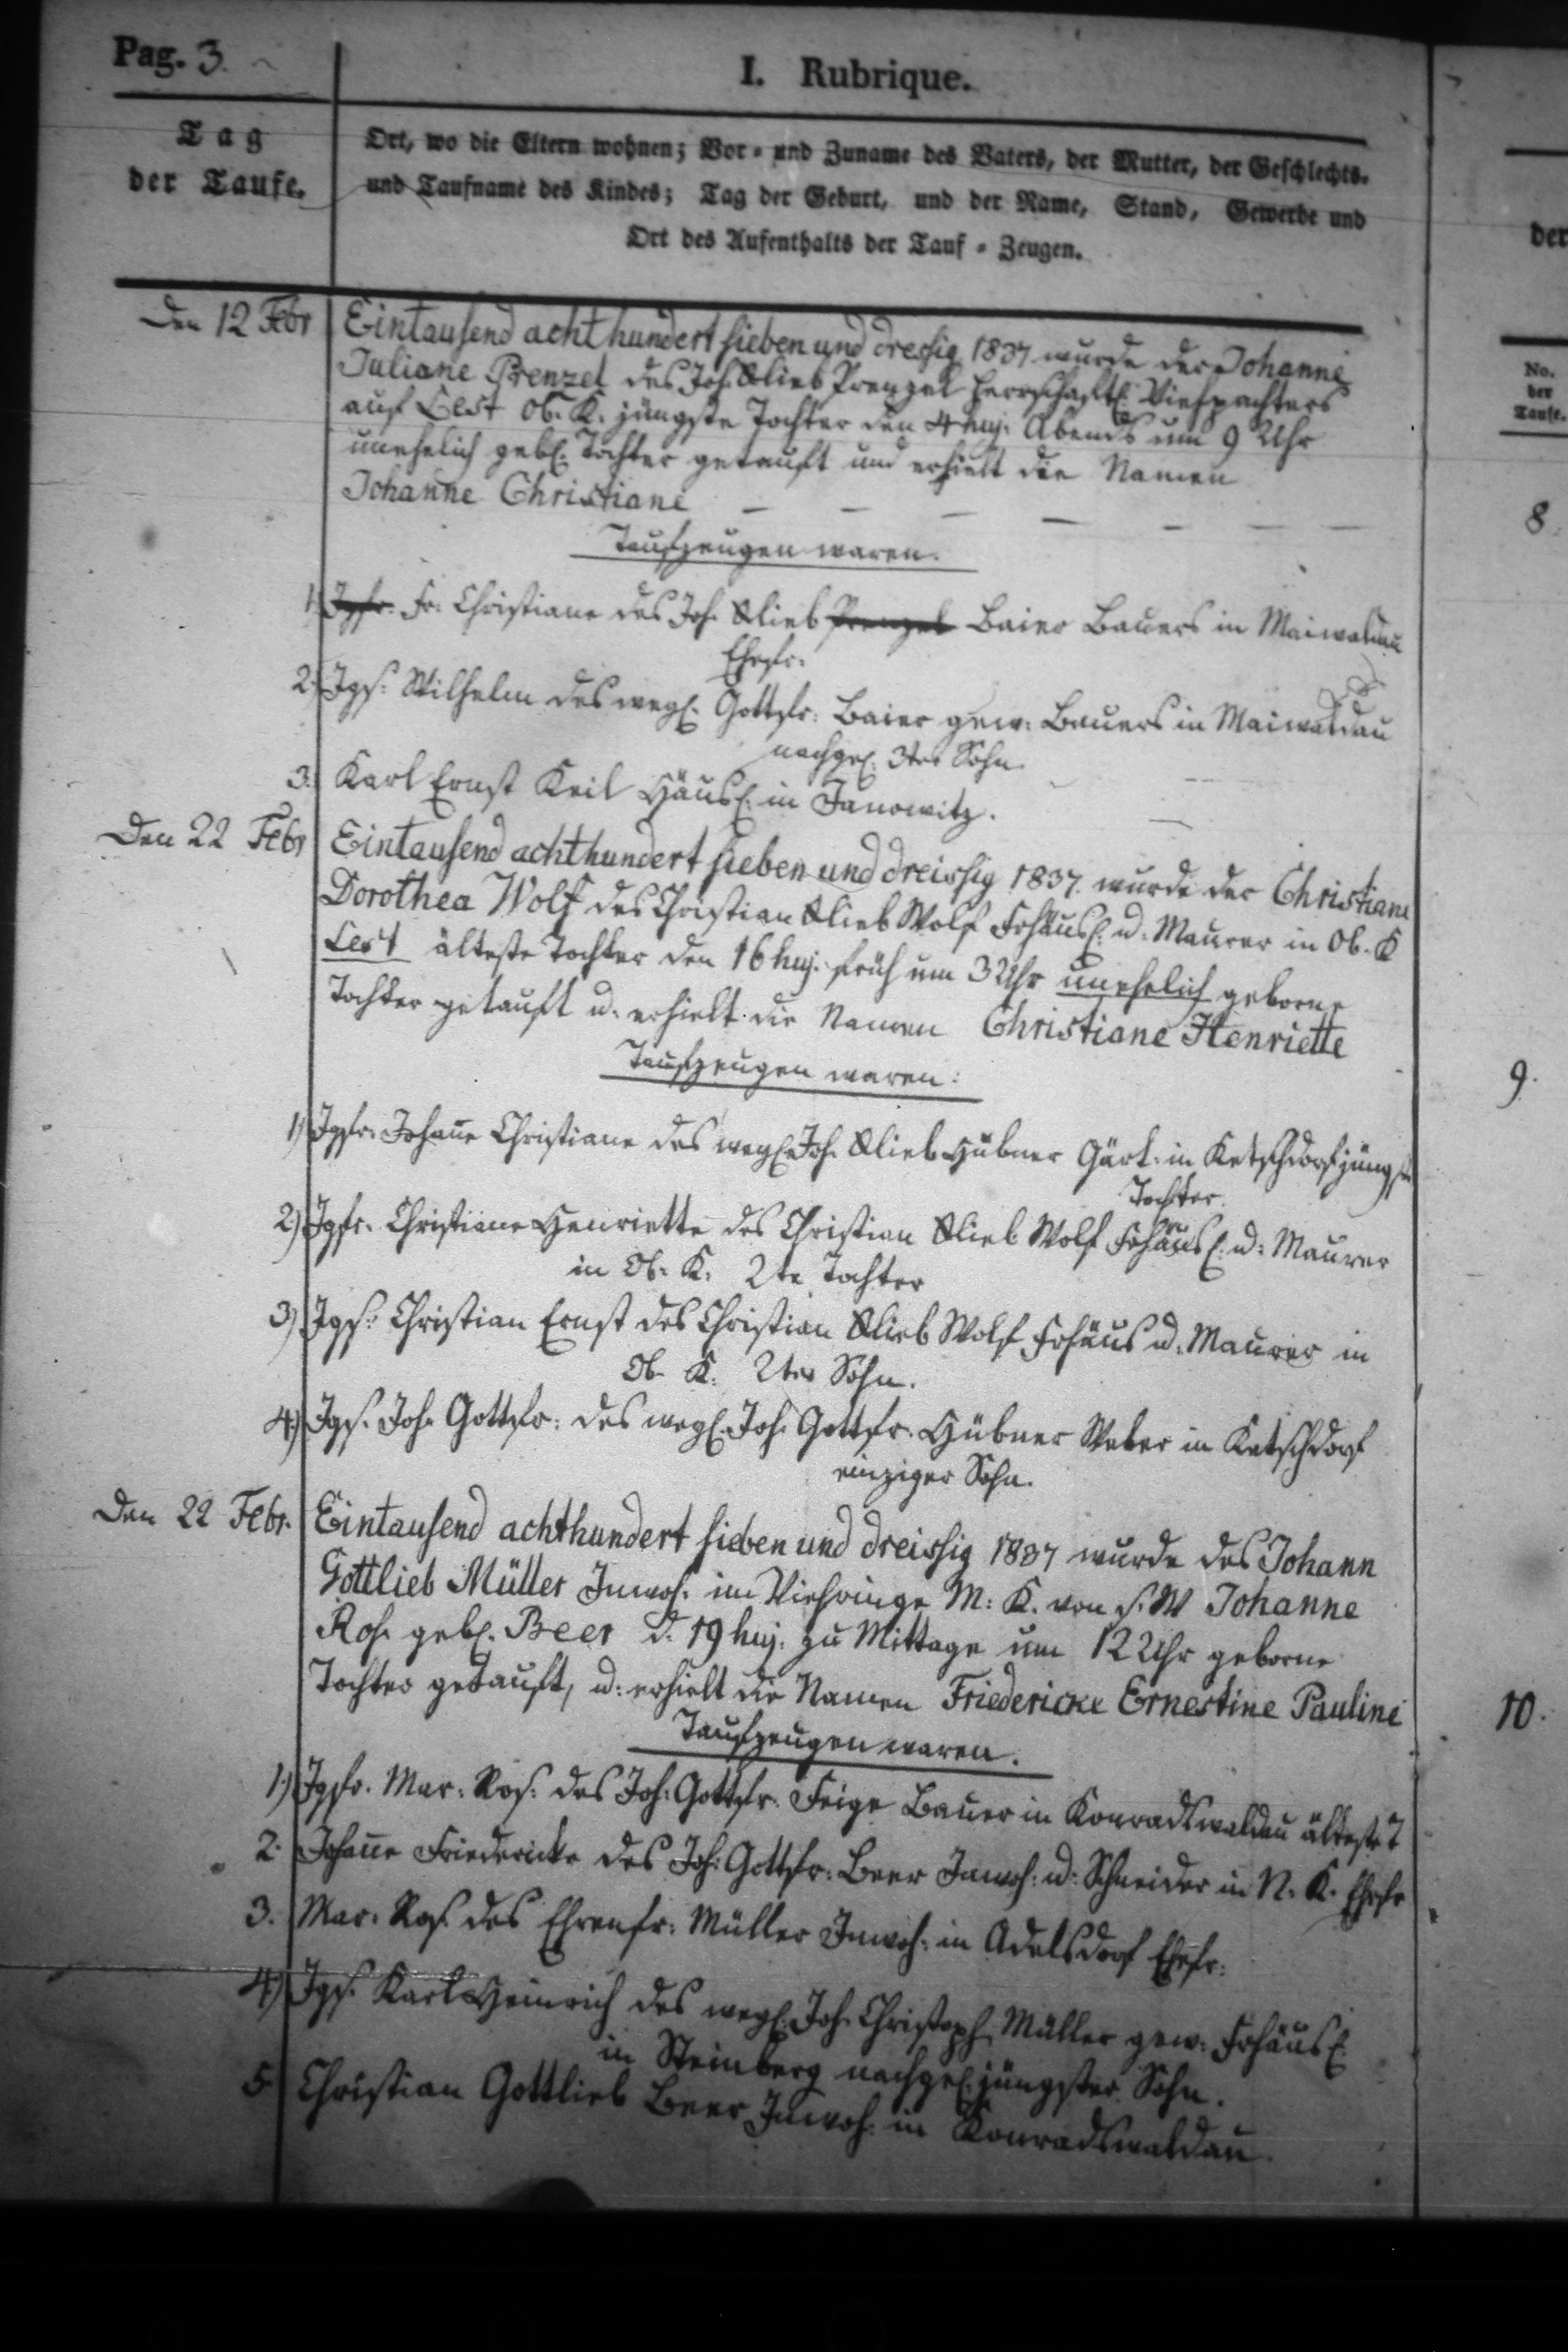 Pag. 3.
I. Rubrique.
Tag
der Taufe.
Ort, wo die Eltern wohnen; Vor- und Zuname des Vaters, der Mutter, der Geschlechts-
und Taufname des Kindes; Tag der Geburt, und der Name, Stand, Gewerbe und
Ort des Aufenthalts der Tauf-Zeugen.
Den 12 Febr
Eintausend achthundert sieben und dreisig 1837 wurde der Johanne
Juliane Prenzel des Joh. Glieb Prenzel herrschaftl. Viehpachters
auf Lest Ob. K. jüngste Tochter den 4 huj. Abends um 9 Uhr
unehelich gebl. Tochter getauft und erhielt die Namen
Johanne Christiane
Taufzeugen waren.
1. Jgfr. Fr. Christiane des Joh. Glieb Prenzel Baier Bauers in Maiwaldau
Ehefr.
2. Jgs. Wilhelm des wegl. Gottfr. Baier gew. Bauers in Maiwaldau
nachgel. 3ter Sohn
3. Karl Ernst Keil Häusl. in Janowitz.
Den 22 Febr
Eintausend achthundert sieben und dreissig 1837. wurde der Christiane
Dorothea Wolf des Christian Glieb Wolf Frhäusl. u. Maurer in Ob. K
Lest älteste Tochter den 16 huj. früh um 3 Uhr unehelich geborne
Tochter getauft u. erhielt die Namen Christiane Henriette
Taufzeugen waren:
1) Jgfr. Johane Christiane des wegl. Joh. Glieb Hübner Gärt. in Ketschdorf jüngste
Tochter.
2) Jgfr. Christiane Henriette des Christian Glieb Wolf Frhäusl. u. Maurer
in Ob. K. 2te Tochter
3) Jgs. Christian Ernst des Christian Glieb Wolf Frhäus u. Maurer in
Ob. K. 2ter Sohn.
4) Jgs. Joh. Gottfr. des wegl. Joh. Gottfr. Hübner Weber in Ketschdorf
einziger Sohn.
Den 22 Febr.
Eintausend achthundert sieben und dreissig 1837 wurde des Johann
Gottlieb Müller Inwoh. im Viehringe M. K. von s. W Johanne
Ros. gebl. Beer d. 19 huj. zu Mittage um 12 Uhr geborne
Tochter getauft, u. erhielt die Namen Friedericke Ernestine Pauline
Taufzeugen waren.
1) Jgfr. Mar. Ros. des Joh. Gottfr. Feige Bauer in Konradswaldau älteste T
2. Johane Friedericke des Joh. Gottfr. Beer Inwoh. u. Schneider in N. K. Ehefr
3. Mar. Ros. des Ehrenfr. Müller Inwoh. in Adelsdorf Ehefr.
4) Jgs. Karl Heinrich des wegl. Joh. Christoph Müller gew. Frhäusl.
in Steinberg nachgel. jüngster Sohn.
5 Christian Gottlieb Beer Inwoh. in Konradswaldau.
der
No.
der
Taufe.
8.
9.
10.